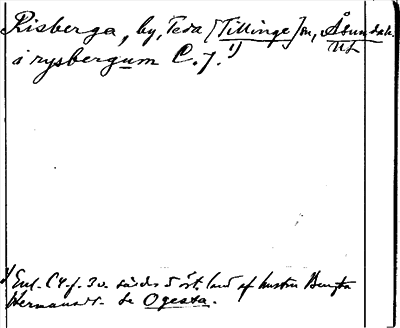 Risberga, by, Teda [Tillinge] sn, Åsunda h.
UL
i rysbergum C. 7. 1)
1) Enl. C 4 f. 3 v. såldes 5 örl. land af hustru Bengta
Hermansd. Se Ogesta.